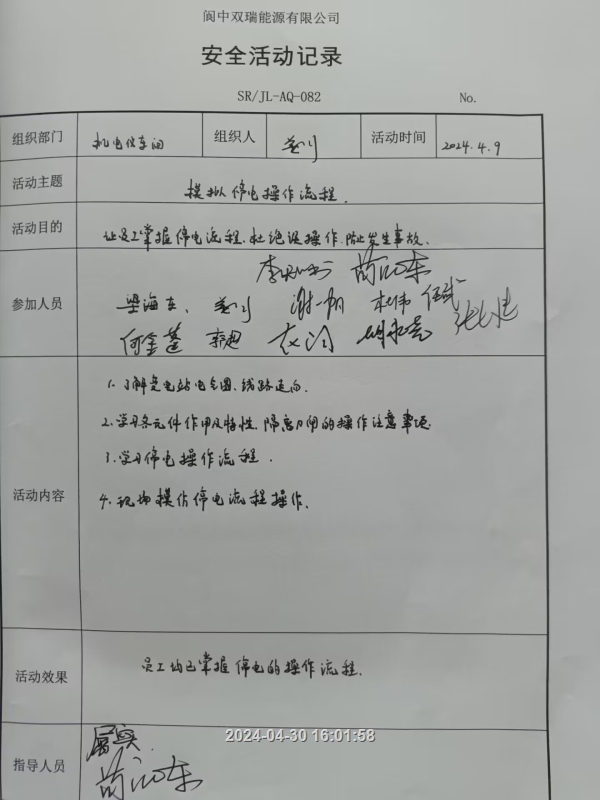 阆中双瑞能源有限公司
安全活动记录
SR/JL-AQ-082 No.
组织部门 机电仪车间 组织人 活动时间 2024.4.9
活动主题 模拟停电操作流程.
活动目的 让员工掌握停电流程.杜绝误操作.防止发生事故.
参加人员
梁海东、 谢一帆 杜伟 伍斌
何金蓬 李超
活动内容
1. 了解变电站电气图、线路走向.
2. 学习各元件作用及特性.隔离刀闸的操作注意事项.
3. 学习停电操作流程.
4. 现场模仿停电流程操作.
活动效果 员工均已掌握停电的操作流程.
2024-04-30 16:01:58
属实.
指导人员